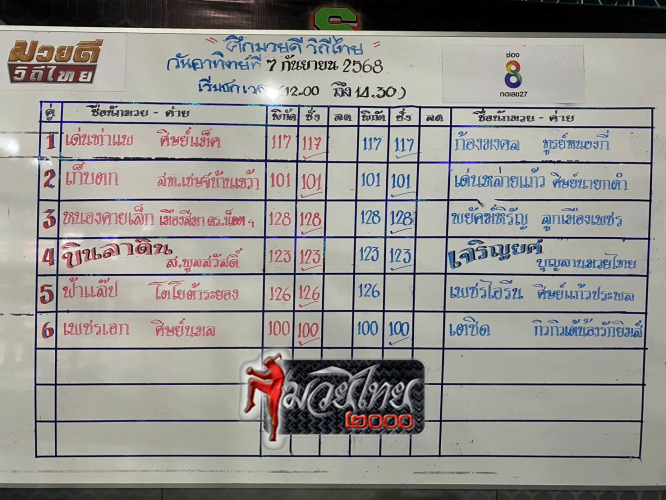 มวยดี
วิถีไทย
"ศึกมวยดี วิถีไทย"
วันอาทิตย์ที่ 7 กันยายน 2568
เริ่มชกเวลา (12.00 ถึง 14.30)
ช่อง
8
กดเลข27
คู่ ชื่อนักมวย - ค่าย พิกัด ชั่ง ลด พิกัด ชั่ง ลด ชื่อนักมวย - ค่าย
1 เด่นท่าแพ ศิษย์แม็ค 117 117 117 117 ก้องมงคล ทูรย์หนองกี่
2 เก็บตก 101 101 101 101 เด่นหล่ายแก้ว ศิษย์นายกดำ
3 หนองคายเล็ก 128 128 128 128 พยัคฆ์หิรัญ ลูกเมืองเพชร
4 บินลาดิน ส.พูลสวัสดิ์ 123 123 123 123 เจริญยศ บุญลานมวยไทย
5 ฟ้าแล๊ป โตโยต้าระยอง 126 126 126 เพชรไอรีน ศิษย์แก้วประพล
6 เพชรเอก ศิษย์นมล 100 100 100 100 เตชิต กิวกิวเต้น้องรักยิมส์
มวยไทย
๒๐๐๐